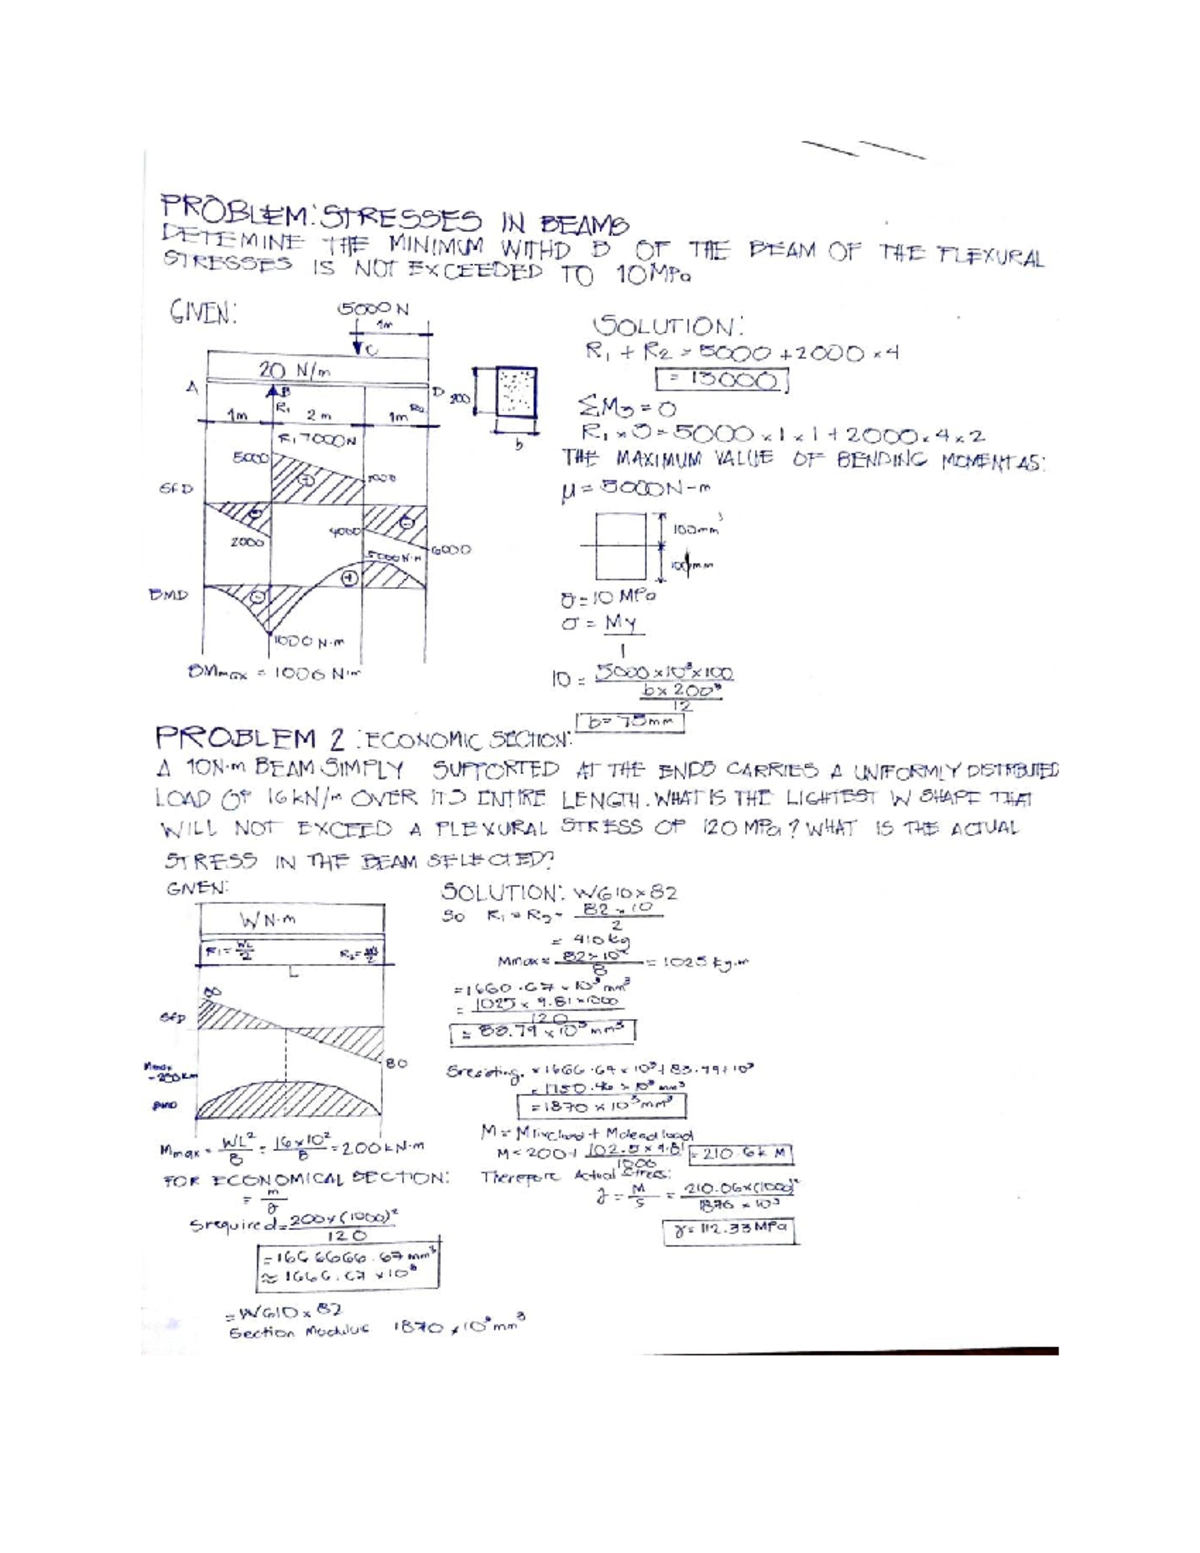 PROBLEM: STRESSES IN BEAMS
DETEMINE THE MINIMUM WITHD B OF THE BEAM OF THE FLEXURAL
STRESSES IS NOT EXCEEDED TO 10MPa
GIVEN:
5000 N
1m
C
20 N/m
A
B
D
R1
R2
1m
2m
1m
R1 7000N
200
b
SFD
5000
1000
2000
4000
6000
5000 N·m
BMD
1000 N·m
BMmax = 1006 N·m
SOLUTION:
R1 + R2 = 5000 + 2000 × 4
= 13000
ΣMD = 0
R1 × 3 = 5000 × 1 × 1 + 2000 × 4 × 2
THE MAXIMUM VALUE OF BENDING MOMENT AS:
M = 5000 N-m
100mm
100mm
σ = 10 MPa
σ = My
I
10 = 5000 × 10³ × 100
b × 200³
12
b = 75mm
PROBLEM 2 : ECONOMIC SECTION:
A 10N·m BEAM SIMPLY SUPPORTED AT THE ENDS CARRIES A UNIFORMLY DISTRIBUTED
LOAD OF 16 kN/m OVER ITS ENTIRE LENGTH. WHAT IS THE LIGHTEST W SHAPE THAT
WILL NOT EXCEED A FLEXURAL STRESS OF 120 MPa? WHAT IS THE ACTUAL
STRESS IN THE BEAM SELECTED?
GIVEN:
W N·m
R1 = WL
2
R2 = WL
2
L
80
SFD
80
BMD
Mmax = WL² = 16 × 10² = 200 kN·m
8 8
FOR ECONOMICAL SECTION:
Srequired = 200 × (1000)²
120
= 1666666.67 mm³
≈ 1666.67 × 10³
= W610 × 82
Section Modulus 1870 × 10³ mm³
SOLUTION: W610 × 82
So R1 = R2 = 82 × 10
2
= 410 kg
Mmax = 82 × 10² = 1025 kg·m
8
= 1660.67 × 10³ mm³
= 1025 × 9.81 × 1000
120
= 83.79 × 10³ mm³
Sresisting × 1666.67 × 10³ + 83.79 × 10³
= 1750.46 × 10³ mm³
= 1870 × 10³ mm³
M = Mliveload + Mdead load
M = 200 + 102.5 × 9.81 = 210.6 k M
1000
Therefore Actual Stress:
= M = 210.06 × (1000)²
S 1870 × 10³
= 112.33 MPa